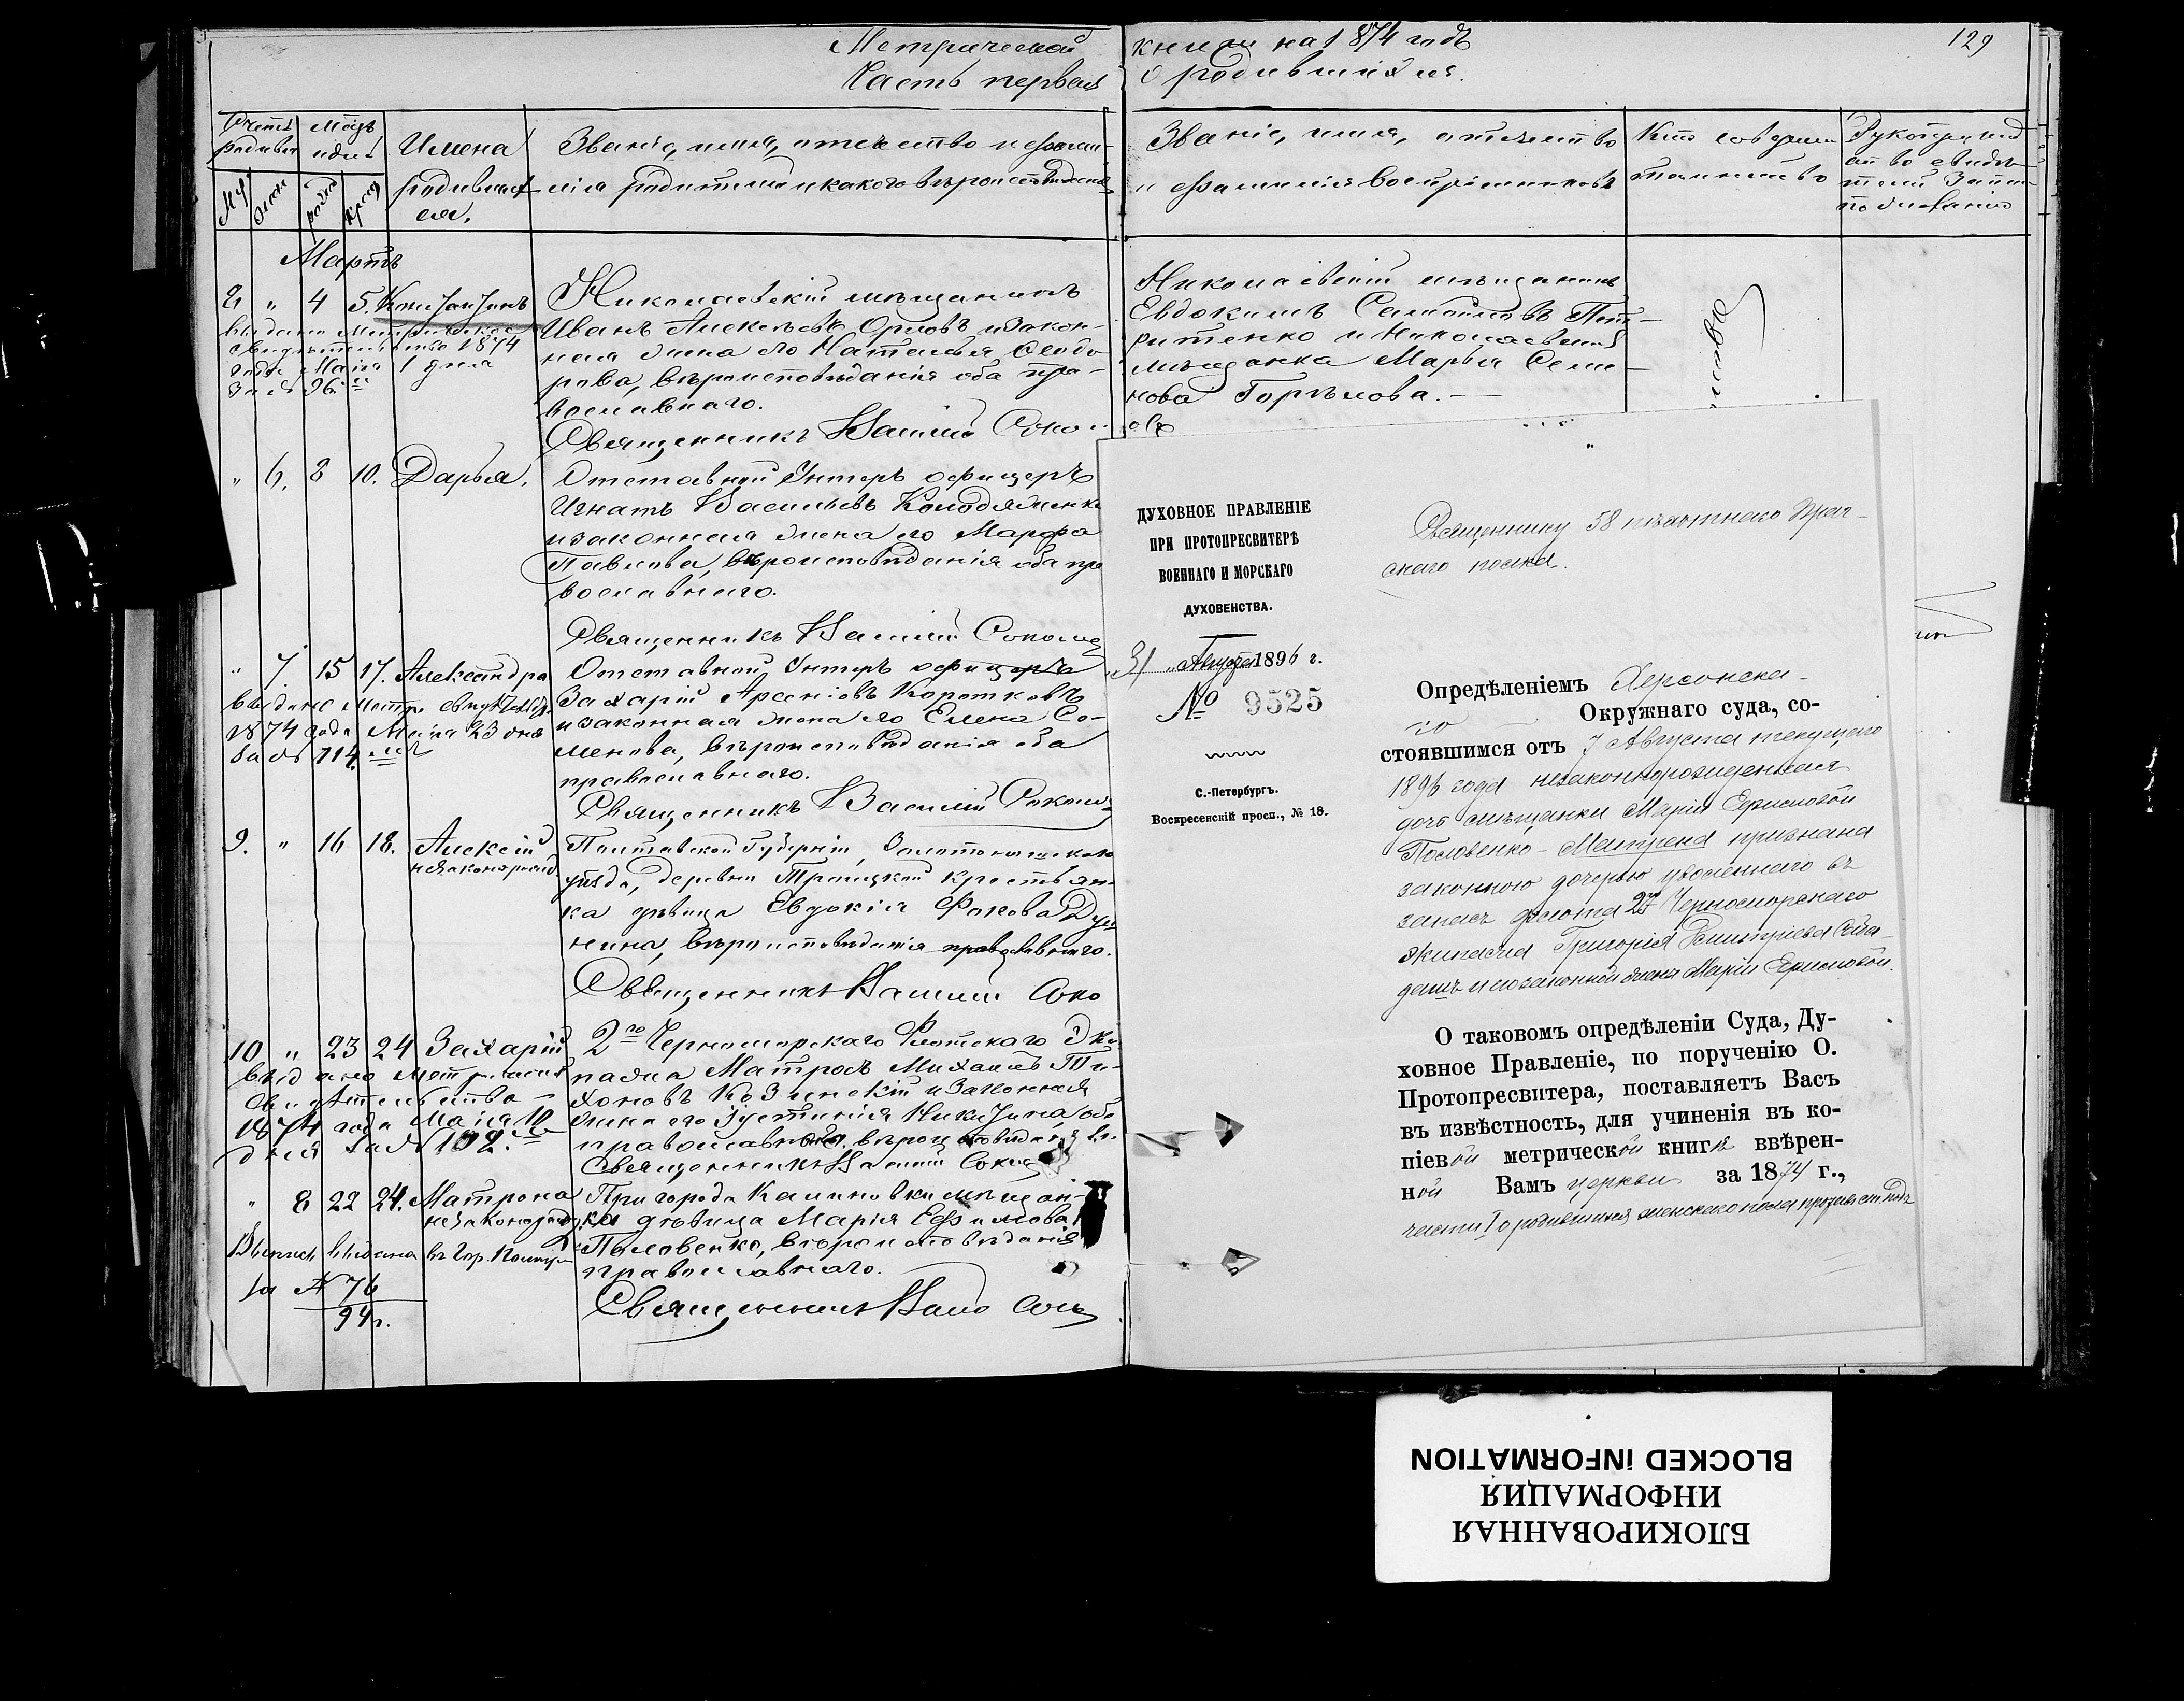 Метрической книги на 1874 годъ
129
Часть первая о родившихся.
Счетъ родивш
Мѣсяцъ и день
Имена родивших ся.
Званіе, имя, отчество и фами-
лія родителей и какого вѣроисповѣданія
Званіе, имя, отчество
и фамилія воспріемниковъ
Кто совершал таинство
Рукоприклад ство свидѣ телей записи по желанію
Мартъ
" 4 5. Константинъ
выдано Метрическое
свидѣтельство 1874
года Маія 1 дня
за № 96.
Николаевскій мѣщанинъ
Иванъ Алексѣевъ Орловъ и закон-
ная жена его Наталья Ѳеодо
рова, вѣроисповѣданія оба пра-
вославнаго.
Священникъ Василій Соко
Николаевскій мѣщанинъ
Евдокимъ
ритенко и Николаевская
мѣщанка Марья Семе-
нова Горѣлова.
" 6. 8 10. Дарья.
Отставной Унтеръ офицеръ
Игнатъ Васильевъ
и законная жена его Марфа
Павлова, вѣроисповѣданія оба пра
вославнаго.
Священникъ Василій Соколов
" 7. 15 17. Александра
выдано Метри. свидѣтел.
1874 года Маія 23 дня
за № 114.
Отставной Унтеръ офицеръ
Захарій Арсеніевъ Коротковъ
и законная жена его Елена Се-
менова, вѣроисповѣданія оба
православнаго.
Священникъ Василій Соколо
9. " 16 18. Алексѣй
незаконорожд
Полтавской Губерніи, Золотоношскаго
уѣзда, деревни Троицкой крестьян
ка дѣвица Евдокія Фокова
нина, вѣроисповѣданія православнаго.
Священникъ Василій Соко
10 " 23 24 Захарій
выдано метрическое
свидѣтельство
1874 года Маія 10
дня за № 102.
2го Черноморскаго Флотскаго Эки
пажа Матросъ Михаилъ Ти-
хоновъ Козинскій и законная
жена его Іустинія Никитина, оба
православнаго вѣроисповѣданія
Священникъ Василій Соко
" 8 22 24. Матрона
незаконорожд.
Выпись выдана въ Гор. Полицію
за № 76
94 г.
Пригорода Калиновки мѣщан-
ка дѣвица Марія Ефимова
Половенко, вѣроисповѣданія
православнаго.
Священникъ Васи Соко
ДУХОВНОЕ ПРАВЛЕНІЕ
ПРИ ПРОТОПРЕСВИТЕРѢ
ВОЕННАГО И МОРСКАГО
ДУХОВЕНСТВА.
31 Августа 1896 г.
№ 9525
С.-Петербургъ.
Воскресенскій просп., № 18.
Священнику 58 пѣхотнаго Праг-
скаго полка.
Опредѣленіемъ Херсонска-
го Окружнаго суда, со-
стоявшимся отъ 7 Августа текущаго
1896 года незаконнорожденная
дочь мѣщанки Маріи Ефимовой
Половенко - Матрена признана
законною дочерью уволеннаго въ
запасъ флота 2го Черноморскаго
экипажа Григорія Димитріева
и его законной жены Маріи Ефимовой.
О таковомъ опредѣленіи Суда, Ду-
ховное Правленіе, по порученію О.
Протопресвитера, поставляетъ Васъ
въ извѣстность, для учиненія въ ко-
піевой метрической книгѣ ввѣрен-
ной Вамъ церкви за 1874 г.,
части I о родившихся женскаго пола
БЛОКИРОВАННАЯ
ИНФОРМАЦИЯ
BLOCKED iNFORMATION